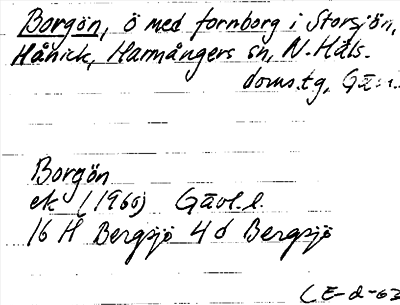 Borgön, ö med fornborg i Storsjön,
Hånick, Harmångers sn, N. Häls.
doms.tg,
Borgön
ek (1960) Gävl.l.
16 H Bergsjö 4 d Bergsjö